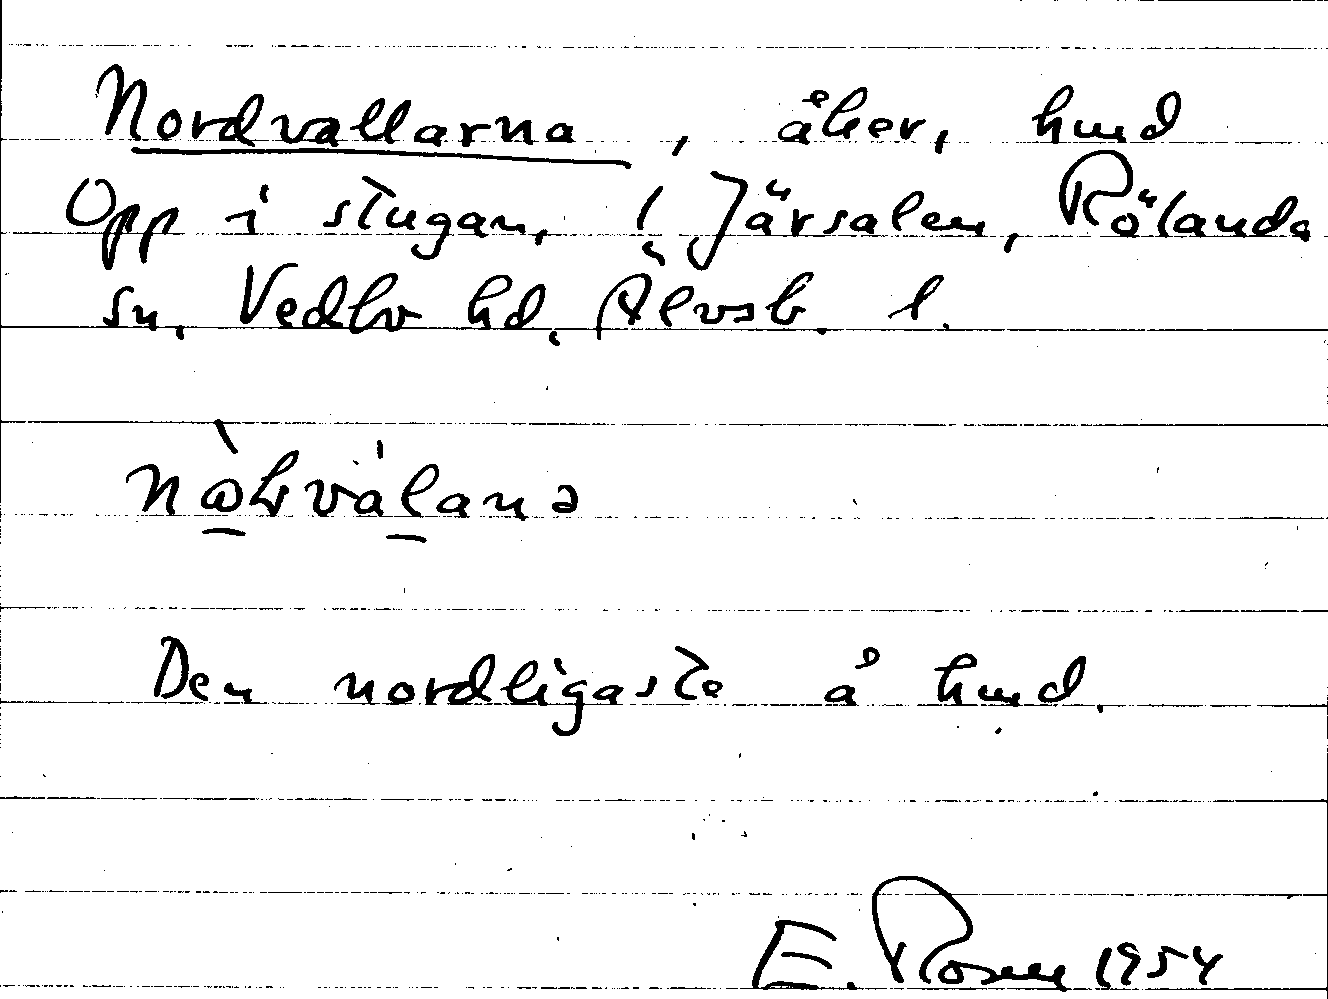 Nordvallarna, åker, hmd
Opp i stugan, i Järsalen, Rölanda
sn. Vedbo hd. Älvsb. l.
Den nordligaste å hmd.
E. Rosen 1954